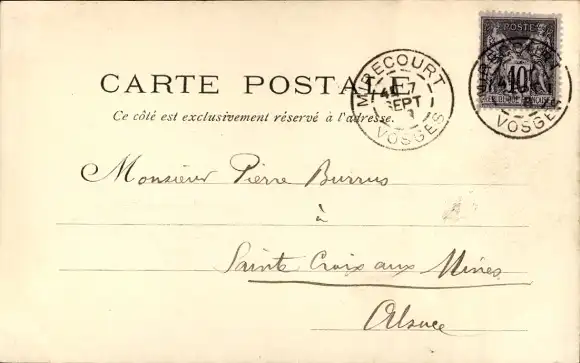 POSTE
10
CARTE POSTALE
MIRECOURT
7
SEPT
VOSGES
MIRECOURT
VOSGES
Ce côté est exclusivement réservé à l'adresse.
Monsieur Pierre Burrus
à
Sainte Croix aux Mines
Alsace